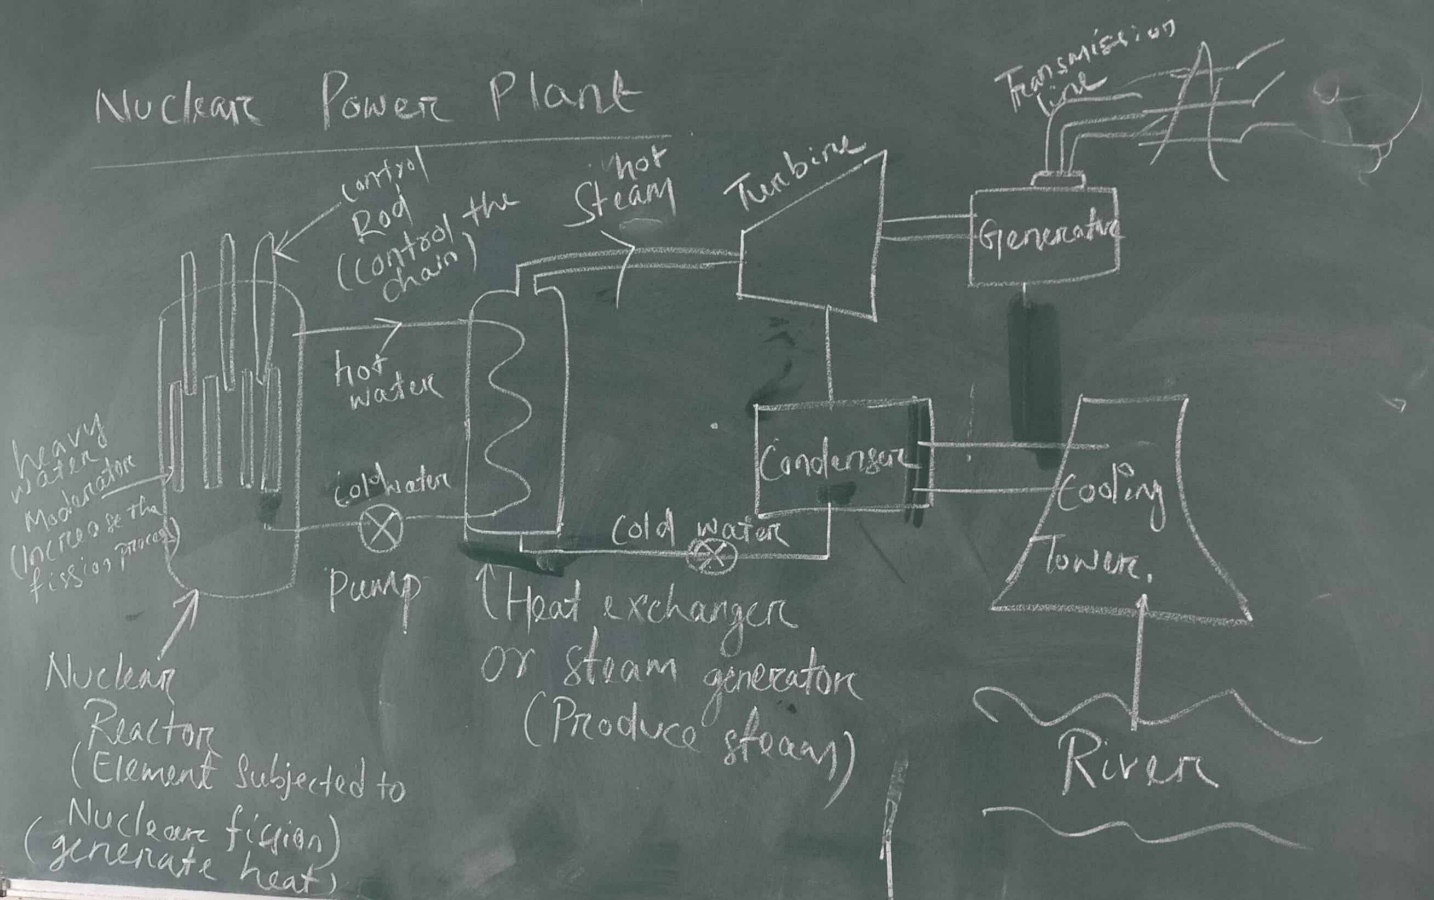 Nuclear Power Plant
Transmission
line
control
Rod
(control the
chain)
hot
Steam
Turbine
Generator
hot
water
heavy
water
Moderator
(Increase the
fission process)
Cold water
Pump
Condenser
Cooling
Tower.
Cold water
Heat exchanger
or steam generator
(Produce steam)
Nuclear
Reactor
(Element subjected to
Nuclear fission)
(generate heat)
River